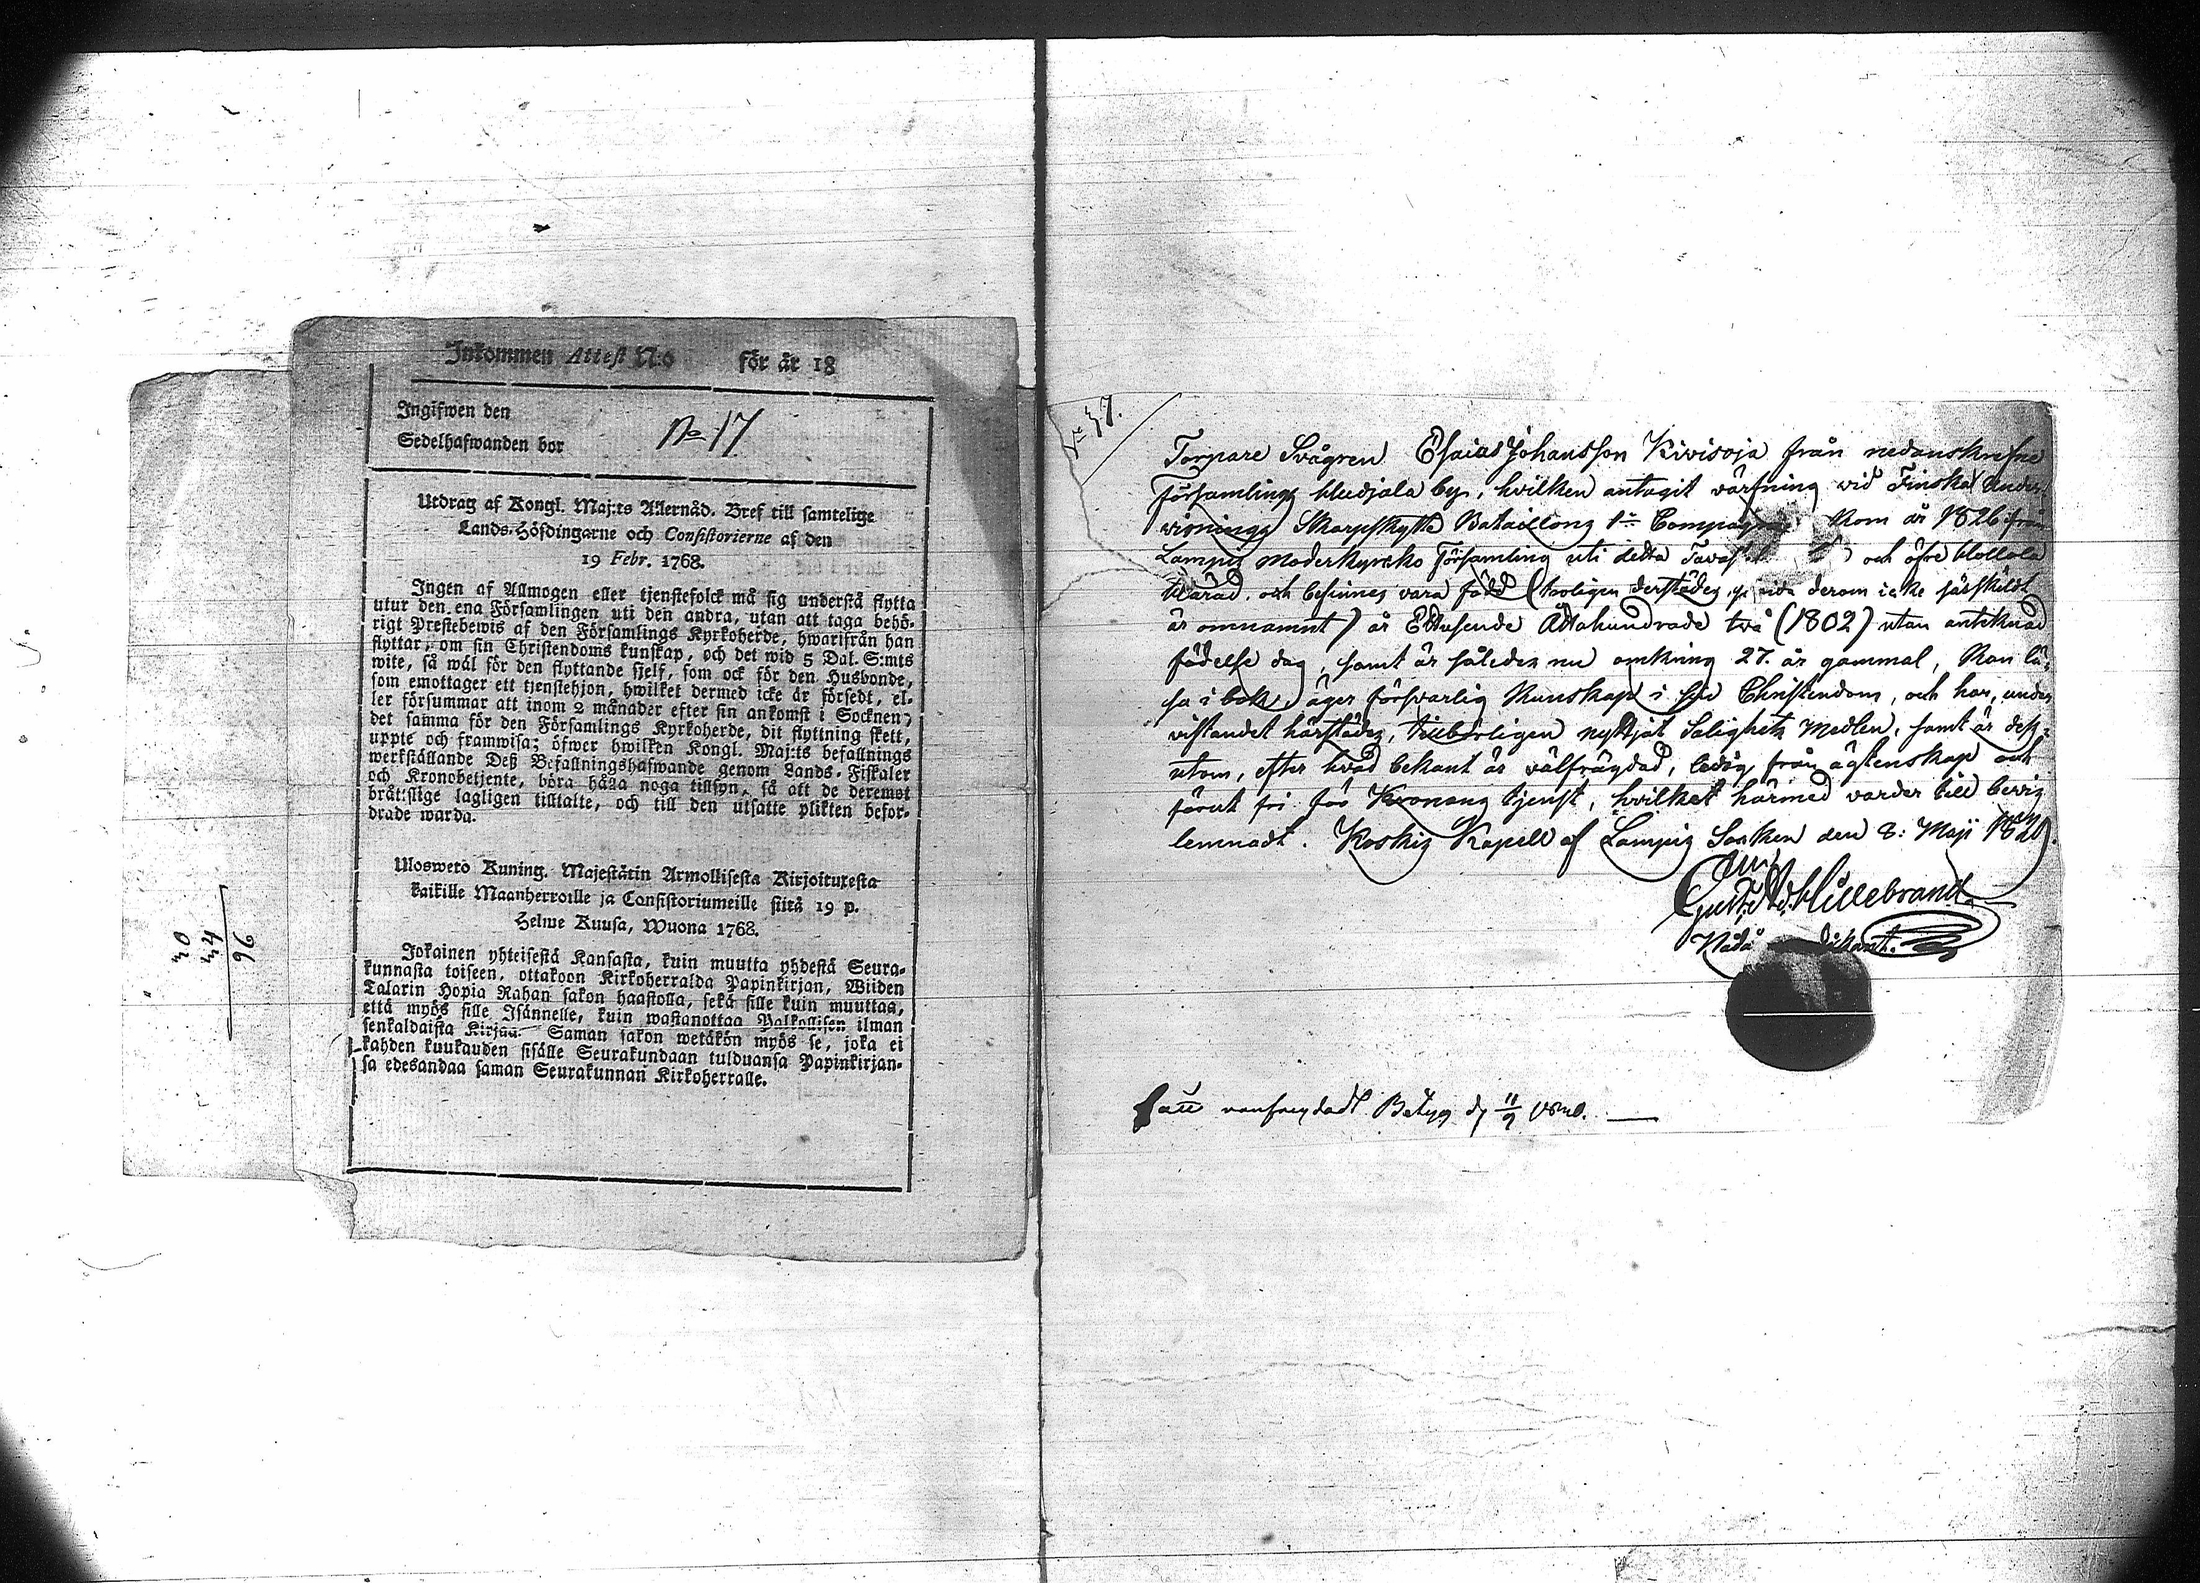 Inkommen Attest N:o för år 18
Ingifwen den
Sedelhafwanden bor
No 17
Utdrag af Kongl. Maj:ts Allernåd. Bref till samtelige
Lands-Höfdingarne och Consistorierne af den
19 Febr. 1768.
Ingen af Allmogen eller tjenstefolck må sig understå flytta
utur den ena Församlingen uti den andra, utan att taga behö-
rigt Prestebewis af den Församlings Kyrkoherde, hwarifrån han
flyttar, om sin Christendoms kunskap, och det wid 5 Dal. S:mts
wite, så wäl för den flyttande sjelf, som ock för den Husbonde,
som emottager ett tjenstehjon, hwilket dermed icke är försedt, el-
ler försummar att inom 2 månader efter sin ankomst i Socknen,
det samma för den Församlings Kyrkoherde, dit flyttning skett,
uppte och framwisa; öfwer hwilken Kongl. Maj:ts befallnings
werkställande Deß Befallningshafwande genom Lands-Fiskaler
och Kronobetjente, böra hålla noga tillsyn, så att de deremot
bråtslige lagligen tilltalte, och till den utsatte plikten befor-
drade warda.
Ulosweto Kuning. Majestätin Armollisesta Kirjoituxesta
kaikille Maanherroille ja Consistoriumeille siitä 19 p.
Helme Kuusa, Wuona 1768.
Jokainen yhteisestä Kansasta, kuin muutta yhdestä Seura-
kunnasta toiseen, ottakoon Kirkoherralda Papinkirjan, Wiiden
Talarin Hopia Rahan sakon haastolla, sekä sille kuin muuttaa,
että myös sille Isännelle, kuin wastanottaa Palkollisen ilman
senkaldaista Kirjaa. Saman sakon wetäkön myös se, joka ei
kahden kuukauden sisälle Seurakundaan tulduansa Papinkirjan-
sa edesandaa saman Seurakunnan Kirkoherralle.
96
Torpare Svågren Esaias Johansson Kivisoja från nedanskrefne
församlings by, hvilken antagit värfning vid Finska Under-
visnings Skarpskytte Bataillons 1:sta Kom år 1826 från
Lampis Moderkyrko Församling uti detta och öfre Hollola
Härad, och befinnes vara född (troligen derstädes derom icke särskildt
är omnämnt) år Ettusende Åttahundrade två (1802) utan anteknad
födelse dag, samt är således nu omkring 27. år gammal, kan lä-
sa i bok, äger försvarlig kunskap i sin Christendom, och har, under
vistandet härstädes, tillbörligen nyttjat Salighets Medlen, samt är dess-
utom, efter hvad bekant är välfrägdad, ledig från ägtenskap och
förut fri för Kronans tjenst, hvilket härmed varder till bevis
lemnadt. Koskis Kapell af Lampis Socken den 8: Maji
Gust. Ad. Hillebrand